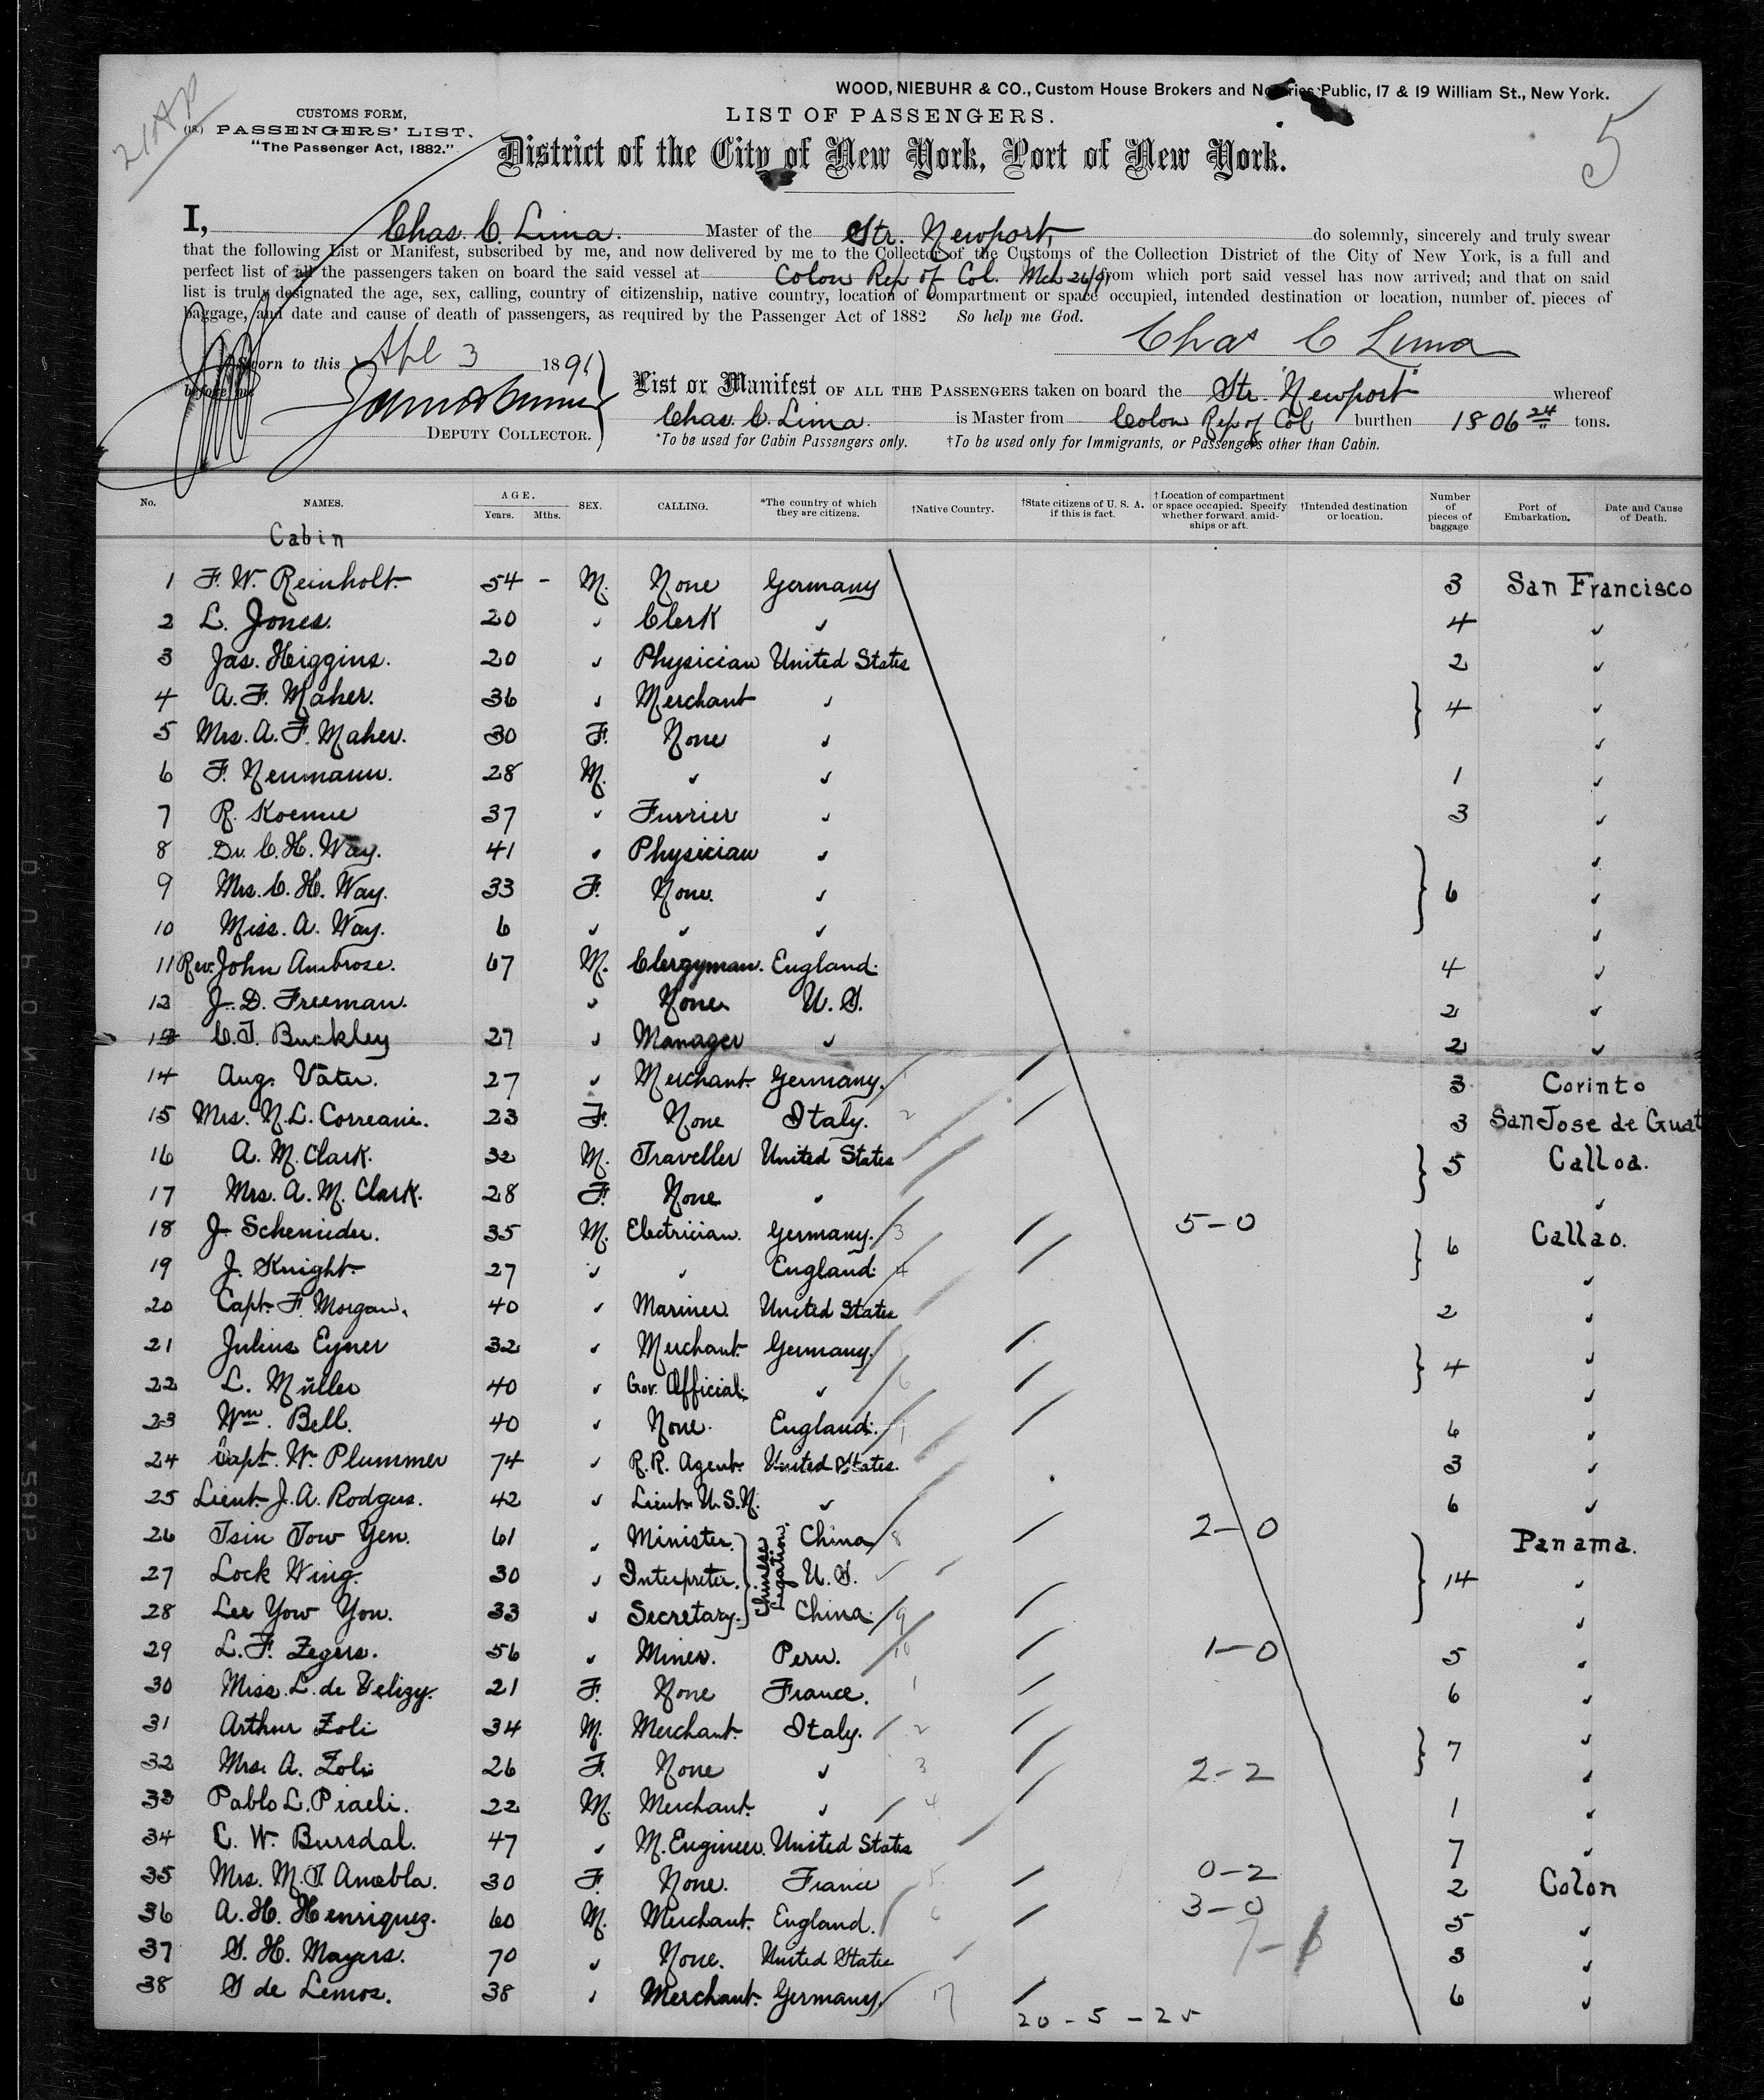 WOOD, NIEBUHR & CO., Custom House Brokers and Notaries Public, 17 & 19 William St., New York.
21 Ap
5
CUSTOMS FORM,
(18.) PASSENGERS' LIST.
"The Passenger Act, 1882."
LIST OF PASSENGERS.
District of the City of New York, Port of New York.
I, Chas. C. Lima. Master of the Str. Newport, do solemnly, sincerely and truly swear
that the following List or Manifest, subscribed by me, and now delivered by me to the Collector of the Customs of the Collection District of the City of New York, is a full and
perfect list of all the passengers taken on board the said vessel at Colon Rep of Col. Mch 26/91 from which port said vessel has now arrived; and that on said
list is truly designated the age, sex, calling, country of citizenship, native country, location of compartment or space occupied, intended destination or location, number of pieces of
baggage, and date and cause of death of passengers, as required by the Passenger Act of 1882 So help me God.
Chas C Lima
Sworn to this Apl 3 1891
before me
DEPUTY COLLECTOR.
List or Manifest OF ALL THE PASSENGERS taken on board the Str. "Newport" whereof
Chas. C. Lima is Master from Colon Rep of Col burthen 1806 24 tons.
*To be used for Cabin Passengers only. †To be used only for Immigrants, or Passengers other than Cabin.
No. NAMES. AGE. Years. Mths. SEX. CALLING. *The country of which they are citizens. †Native Country. †State citizens of U. S. A. if this is fact. †Location of compartment or space occupied. Specify whether forward, amidships or aft. †Intended destination or location. Number of pieces of baggage Port of Embarkation. Date and Cause of Death.
Cabin
1 F. W. Reinholt. 54 - M. None Germany 3 San Francisco
2 L. Jones. 20 " Clerk " 4 "
3 Jas. Higgins. 20 " Physician United States 2 "
4 A. F. Maher. 36 " Merchant " } 4 "
5 Mrs. A. F. Maher. 30 F. None " "
6 F. Neumann. 28 M. " " 1 "
7 R. Koenue 37 " Furrier " 3 "
8 Dr. C. H. Way. 41 " Physician " "
9 Mrs. C. H. Way. 33 F. None. " } 6 "
10 Miss. A. Way. 6 " " " "
11 Rev. John Ambrose. 67 M. Clergyman. England. 4 "
12 J. D. Freeman. " None U. S. 2 "
13 C. T. Buckley 27 " Manager " 2 "
14 Aug. Vater. 27 " Merchant Germany. 3 Corinto
15 Mrs. N. L. Correani. 23 F. None Italy. 2 3 San Jose de Guat
16 A. M. Clark. 32 M. Traveller United States } 5 Calloa.
17 Mrs. A. M. Clark. 28 F. None " "
18 J. Schenider. 35 M. Electrician. Germany. 3 5-0 } 6 Callao.
19 J. Knight. 27 " " England. 4 "
20 Capt. F. Morgan. 40 " Mariner. United States 2 "
21 Julius Eyner 32 " Merchant. Germany. } 4 "
22 L. Müller 40 " Gov. Official. " 6 "
23 Wm. Bell. 40 " None. England. 7 6 "
24 Capt. W. Plummer 74 " R. R. Agent. United States. 3 "
25 Lieut. J. A. Rodgers. 42 " Lieut. U. S. N. " 6 "
26 Tsin Tow Yen. 61 " Minister. } Chinese Legation. China 8 2-0 Panama.
27 Lock Wing. 30 " Interpreter. U. S. } 14 "
28 Lee Yow Yon. 33 " Secretary. China. 9 "
29 L. F. Zegers. 56 " Miner. Peru. 10 1-0 5 "
30 Miss. L. de Velizy. 21 F. None France. 1 6 "
31 Arthur Zoli 34 M. Merchant. Italy. 2 } 7 "
32 Mrs. A. Zoli 26 F. None " 3 2-2 "
33 Pablo L. Piaeli. 22 M. Merchant. " 4 1 "
34 C. W. Bursdal. 47 " M. Engineer. United States 7 "
35 Mrs. M. T. Amabla. 30 F. None. France 5 0-2 2 Colon
36 A. H. Henriquez. 60 M. Merchant. England. 6 3-0 5 "
37 S. H. Mayers. 70 " None. United States 3 "
38 S de Lemos. 38 " Merchant. Germany. 7 6 "
20 - 5 - 25